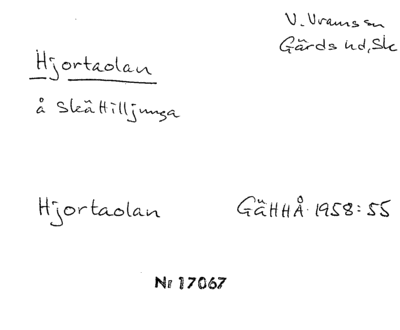 V. Vramssn
Gärds hd, Sk
Hjortaolan
å Skättilljunga
Hjortaolan GäHHÅ 1958:55
Nr 17067